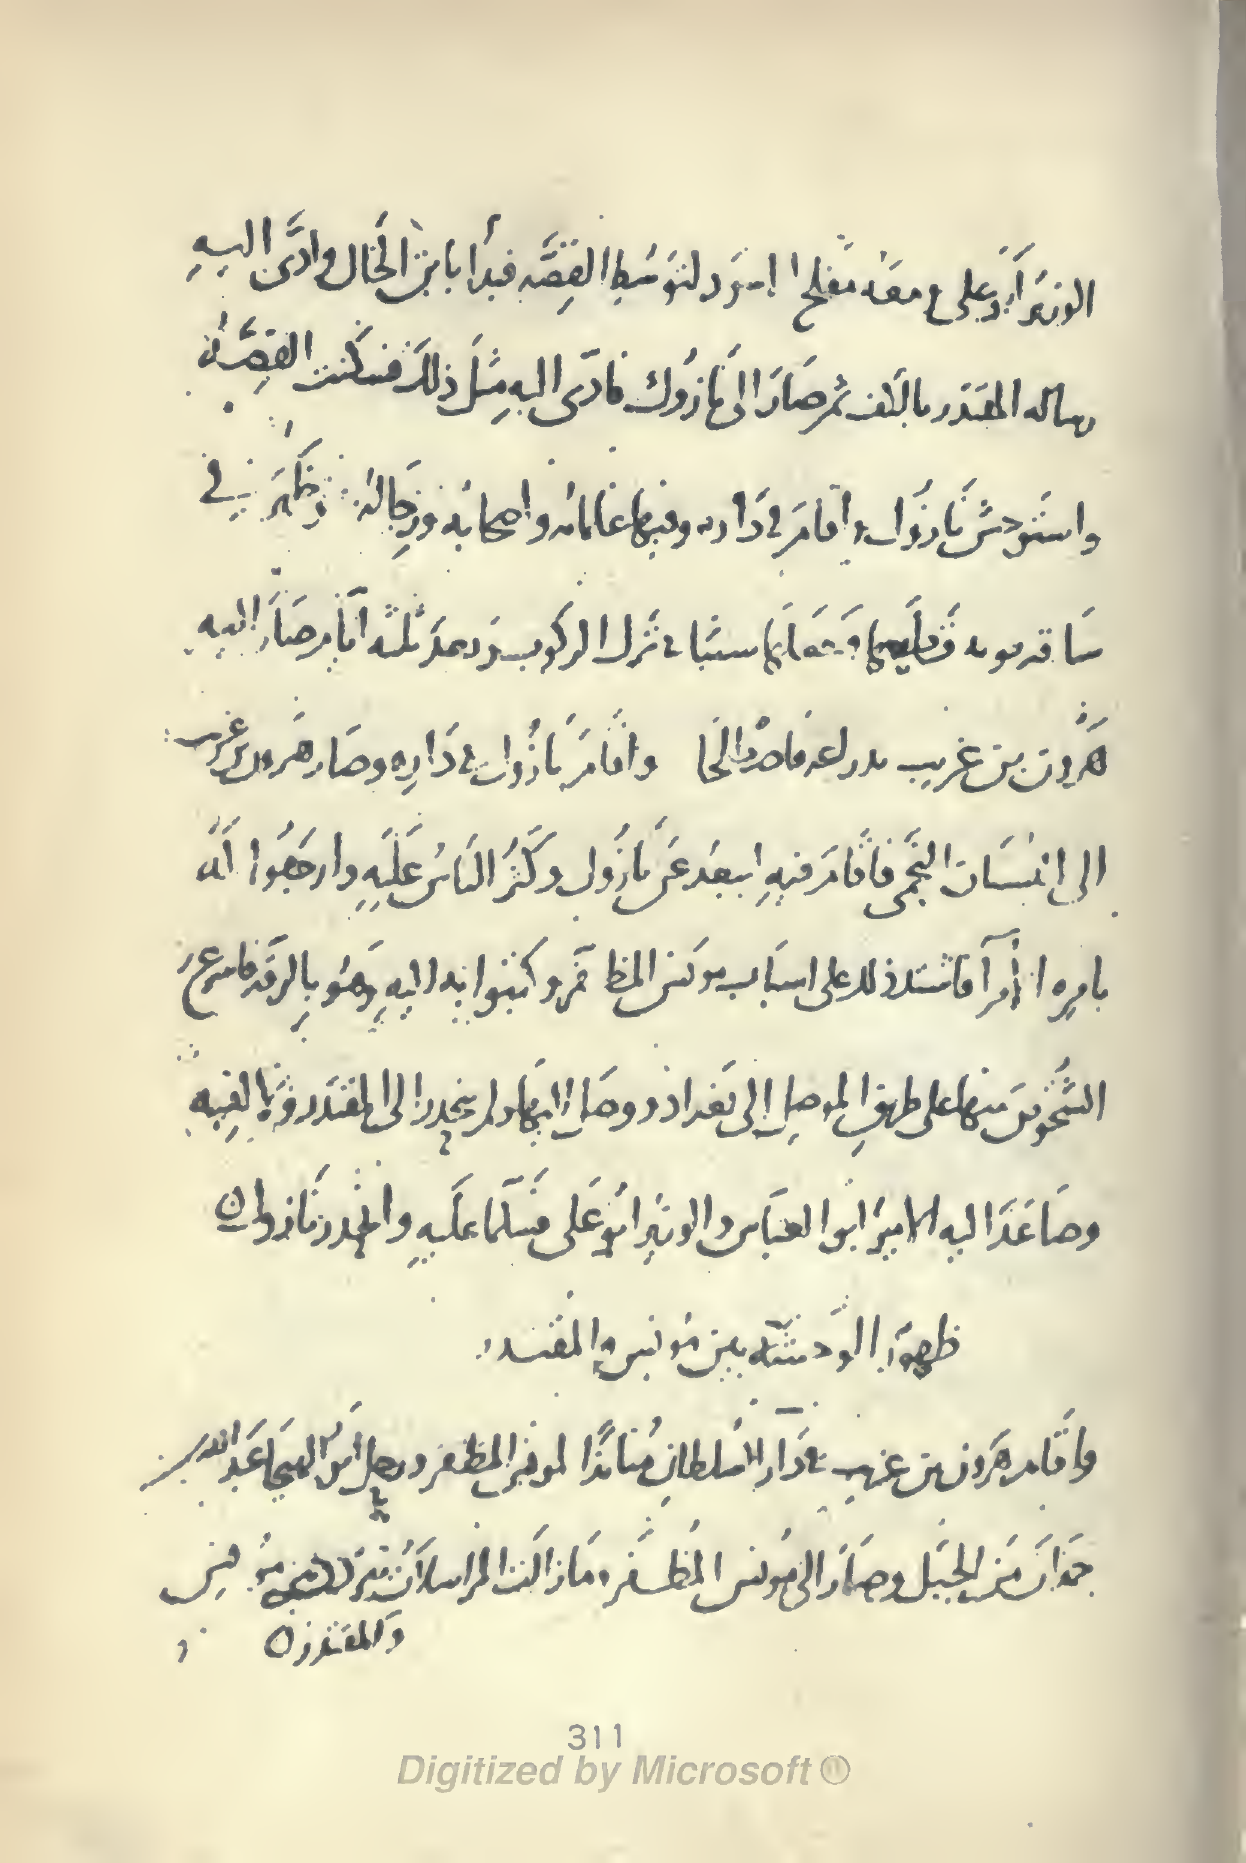 الوزير أبو علي ومعه مفلح الاسود لتوسط القصة فبدأ بابن الخال وادى اليه
رساله المقتدر بالكف ثم صار الى نازوك فادى اليه مثل ذلك فسكنت القصة
واستوحش نازوك واقام في داره وفيها غلمانه واصحابه ورجاله وظهر في
ساقه فجعلها سببا في ترك الركوب وبعد ثلثه ايام صار اليه
هرون بن غريب واقام نازوك في داره وصار هرون بن غريب
الى البستان النجمى فاقام فيه ليبعد عن نازوك وكثر الناس عليه وارجفوا له
بامره الأمرآ فاشتد ذلك على اسباب مونس المظفر وكتبوا بذلك اليه وهو بالرقه فاسرع
الشخوص منها على طريق الموصل الى بغداذ ووصل اليها ولم ينحدر الى المقتدر ولا لقيه
وصاعد اليه الامير ابو العباس والوزير ابو على فسلما عليه وانحدر نازوك
ظهور الوحشه بين مونس والمقتدر
واقام هرون بن غريب في دار السلطان منابذا لمونس المظفر ودخل ابو الهيجا عبد الله بن
حمدان من الجبل وصار الى مونس المظفر وما زالت المراسلات تتردد بين مونس
والمقتدر
311
Digitized by Microsoft ®